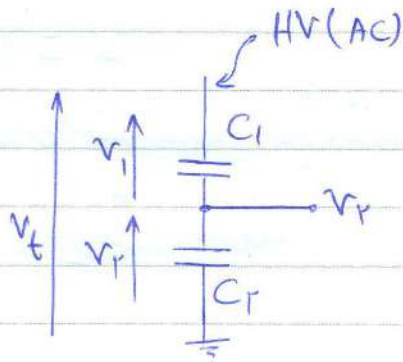 HV(AC)
C₁
V₁
V₂
V_t
V₂
C₂